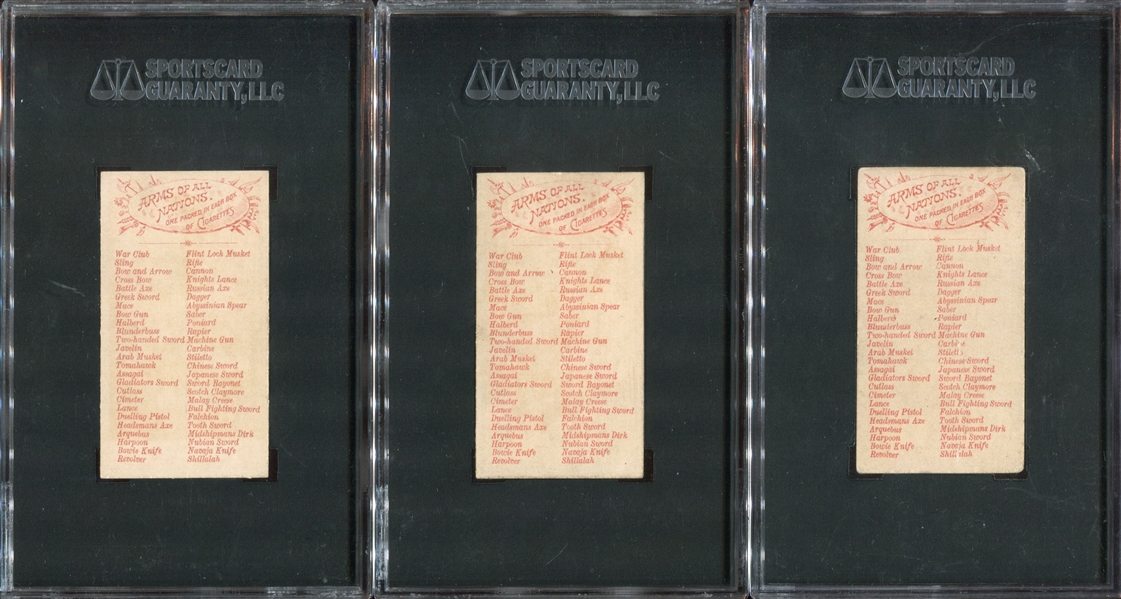 SPORTSCARD
GUARANTY, LLC
ARMS OF ALL
NATIONS.
ONE PACKED IN EACH BOX
OF CIGARETTES
War Club Flint Lock Musket
Sling Rifle
Bow and Arrow Cannon
Cross Bow Knights Lance
Battle Axe Russian Axe
Greek Sword Dagger
Mace Abyssinian Spear
Bow Gun Saber
Halberd Poniard
Blunderbuss Rapier
Two-handed Sword Machine Gun
Javelin Carbine
Arab Musket Stiletto
Tomahawk Chinese Sword
Assagai Japanese Sword
Gladiators Sword Sword Bayonet
Cutlass Scotch Claymore
Cimeter Malay Creese
Lance Bull Fighting Sword
Duelling Pistol Falchion
Headsmans Axe Tooth Sword
Arquebus Midshipmans Dirk
Harpoon Nubian Sword
Bowie Knife Navaja Knife
Revolver Shillalah
SPORTSCARD
GUARANTY, LLC
ARMS OF ALL
NATIONS.
ONE PACKED IN EACH BOX
OF CIGARETTES
War Club Flint Lock Musket
Sling Rifle
Bow and Arrow Cannon
Cross Bow Knights Lance
Battle Axe Russian Axe
Greek Sword Dagger
Mace Abyssinian Spear
Bow Gun Saber
Halberd Poniard
Blunderbuss Rapier
Two-handed Sword Machine Gun
Javelin Carbine
Arab Musket Stiletto
Tomahawk Chinese Sword
Assagai Japanese Sword
Gladiators Sword Sword Bayonet
Cutlass Scotch Claymore
Cimeter Malay Creese
Lance Bull Fighting Sword
Duelling Pistol Falchion
Headsmans Axe Tooth Sword
Arquebus Midshipmans Dirk
Harpoon Nubian Sword
Bowie Knife Navaja Knife
Revolver Shillalah
SPORTSCARD
GUARANTY, LLC
ARMS OF ALL
NATIONS.
ONE PACKED IN EACH BOX
OF CIGARETTES
War Club Flint Lock Musket
Sling Rifle
Bow and Arrow Cannon
Cross Bow Knights Lance
Battle Axe Russian Axe
Greek Sword Dagger
Mace Abyssinian Spear
Bow Gun Saber
Halberd Poniard
Blunderbuss Rapier
Two-handed Sword Machine Gun
Javelin Carbine
Arab Musket Stiletto
Tomahawk Chinese Sword
Assagai Japanese Sword
Gladiators Sword Sword Bayonet
Cutlass Scotch Claymore
Cimeter Malay Creese
Lance Bull Fighting Sword
Duelling Pistol Falchion
Headsmans Axe Tooth Sword
Arquebus Midshipmans Dirk
Harpoon Nubian Sword
Bowie Knife Navaja Knife
Revolver Shillalah